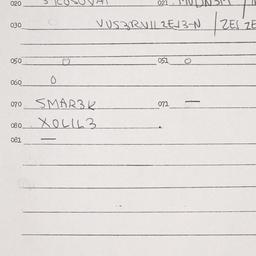 020 021
030 VUS3RVILZEJ3-N ZEI ZE
050 0 051 0
060 0
070 SMAR3K 071 —
080 XOLIL3
081 —